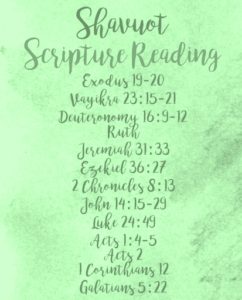 Shavuot
Scripture Reading
Exodus 19-20
Vayikra 23:15-21
Deuteronomy 16:9-12
Ruth
Jeremiah 31:33
Ezekiel 36:27
2 Chronicles 8:13
John 14:15-29
Luke 24:49
Acts 1:4-5
Acts 2
1 Corinthians 12
Galatians 5:22